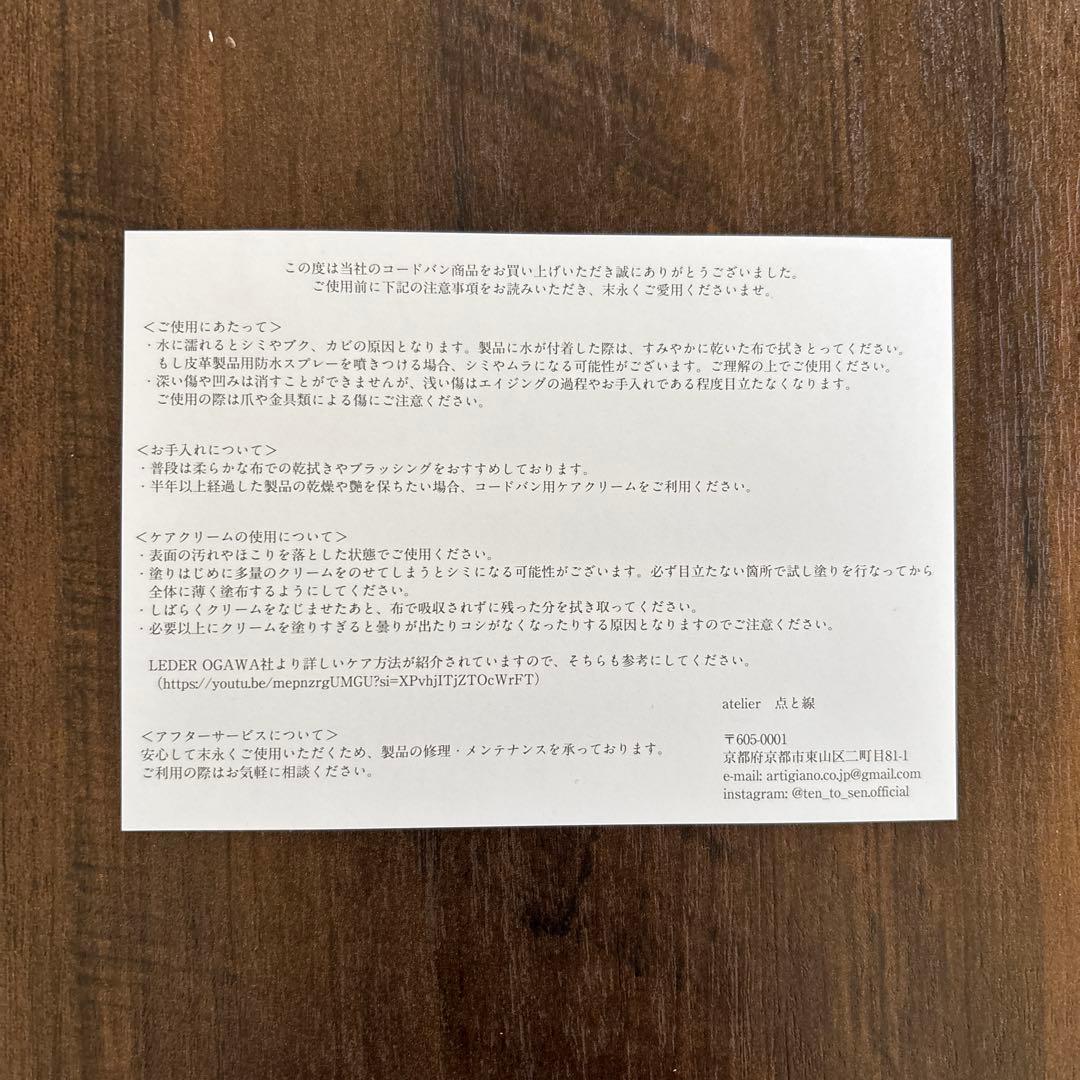 この度は当社のコードバン商品をお買い上げいただき誠にありがとうございました。
ご使用前に下記の注意事項をお読みいただき、末永くご愛用くださいませ。
＜ご使用にあたって＞
・水に濡れるとシミやブク、カビの原因となります。製品に水が付着した際は、すみやかに乾いた布で拭きとってください。
もし皮革製品用防水スプレーを噴きつける場合、シミやムラになる可能性がございます。ご理解の上でご使用ください。
・深い傷や凹みは消すことができませんが、浅い傷はエイジングの過程やお手入れである程度目立たなくなります。
ご使用の際は爪や金具類による傷にご注意ください。
＜お手入れについて＞
・普段は柔らかな布での乾拭きやブラッシングをおすすめしております。
・半年以上経過した製品の乾燥や艶を保ちたい場合、コードバン用ケアクリームをご利用ください。
＜ケアクリームの使用について＞
・表面の汚れやほこりを落とした状態でご使用ください。
・塗りはじめに多量のクリームをのせてしまうとシミになる可能性がございます。必ず目立たない箇所で試し塗りを行なってから
全体に薄く塗布するようにしてください。
・しばらくクリームをなじませたあと、布で吸収されずに残った分を拭き取ってください。
・必要以上にクリームを塗りすぎると曇りが出たりコシがなくなったりする原因となりますのでご注意ください。
LEDER OGAWA社より詳しいケア方法が紹介されていますので、そちらも参考にしてください。
（https://youtu.be/mepnzrgUMGU?si=XPvhjITjZTOcWrFT）
＜アフターサービスについて＞
安心して末永くご使用いただくため、製品の修理・メンテナンスを承っております。
ご利用の際はお気軽に相談ください。
atelier　点と線
〒605-0001
京都府京都市東山区二町目81-1
e-mail: artigiano.co.jp@gmail.com
instagram: @ten_to_sen.official